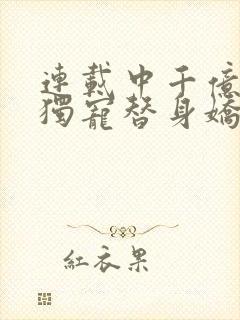 連載中千億
獨寵替身嬌
紅衣果